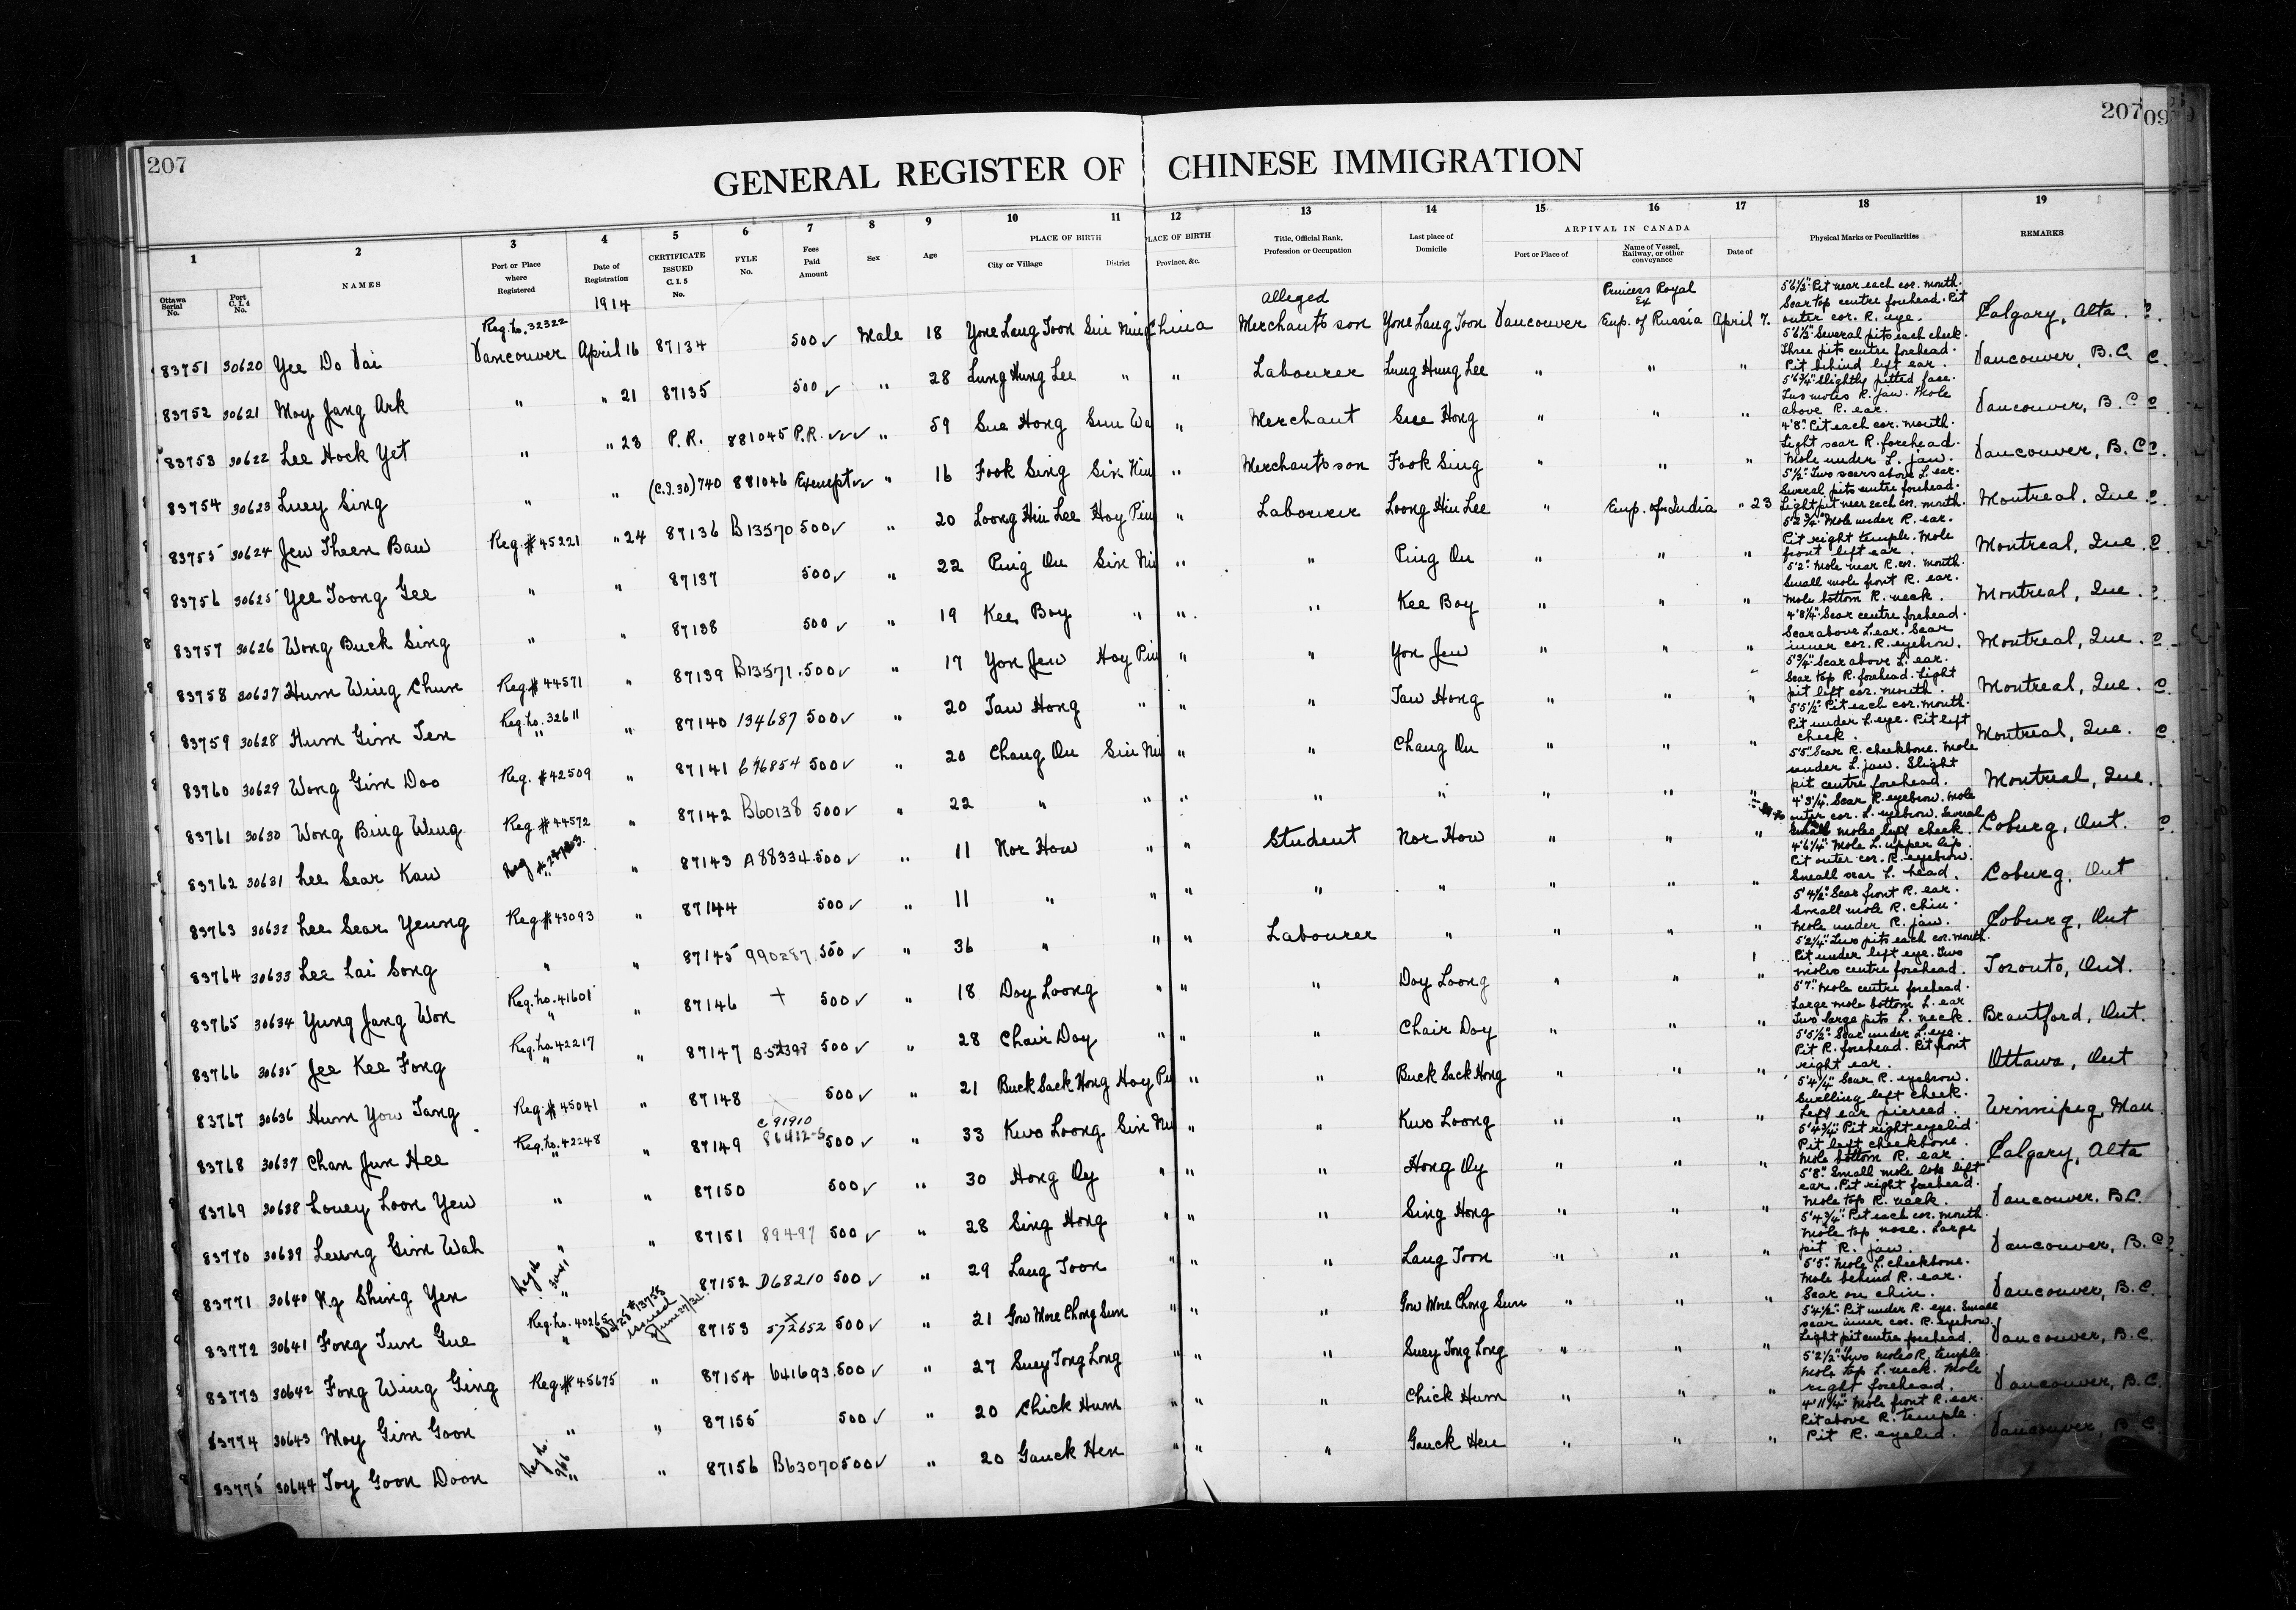 207
207
09
GENERAL REGISTER OF CHINESE IMMIGRATION
1 2 3 4 5 6 7 8 9 10 11 12 13 14 15 16 17 18 19
Ottawa Serial No.
Port C.I.4 No.
NAMES
Port or Place where Registered
Date of Registration
CERTIFICATE ISSUED C. I. 5 No.
FYLE No.
Fees Paid Amount
Sex
Age
PLACE OF BIRTH
City or Village
District
PLACE OF BIRTH
Province, &c.
Title, Official Rank, Profession or Occupation
Last place of Domicile
ARRIVAL IN CANADA
Port or Place of
Name of Vessel, Railway, or other conveyance
Date of
Physical Marks or Peculiarities
REMARKS
1914
83751 30620 Yee Do Dai Reg. No. 32322 Vancouver April 16 87134 500 ✓ Male 18 Yone Lang Toon Sin Ning China Alleged Merchant's son Yone Lang Toon Vancouver Princess Royal Ex Emp. of Russia April 7. 5'6½" Pit near each cor. mouth. Scar top centre forehead. Pit outer cor. R. eye. Calgary, Alta.
83752 30621 Moy Jang Ark " " 21 87135 500 ✓ " 28 Lung Hung Lee " " Labourer Lung Hung Lee " " " 5'6½" Several pits each cheek. Three pits centre forehead. Pit behind left ear. Vancouver, B.C.
83753 30622 Lee Hock Yet " " 23 P.R. 881045 P.R. ✓✓✓ " 59 Sue Hong Sun Wa " Merchant Sue Hong " " " 5'6¾" Slightly pitted face. Two moles R. jaw. Mole above R. ear. Vancouver, B.C.
83754 30623 Luey Sing " " (C.I.30) 740 881046 Exempt ✓✓ " 16 Fook Sing Sin Nin " Merchants son Fook Sing " " " 4'8" Pit each cor. mouth. Light scar R. forehead. Mole under L. jaw. Vancouver, B.C.
83755 30624 Jew Theen Baw Reg. # 45221 " 24 87136 B13570 500 ✓ " 20 Loong Hin Lee Hoy Pin " Labourer Loong Hin Lee " Emp. of India " 23 5'½" Two scars above L. ear. Several pits centre forehead. Light pit near each cor. mouth. Montreal, Que.
83756 30625 Yee Toong Gee " " 87137 500 ✓ " 22 Ping On Sin Ni " " Ping On " " " 5'2¾" Mole under R. ear. Pit right temple. Mole front left ear. Montreal, Que.
83757 30626 Wong Buck Sing " " 87138 500 ✓ " 19 Kee Boy " " " Kee Boy " " " 5'2" Mole near R. cor. mouth. Small mole front R. ear. Mole bottom R. neck. Montreal, Que.
83758 30627 Hum Wing Chun Reg # 44571 " 87139 B13571 500 ✓ " 17 Yon Jew Hoy Pin " " Yon Jew " " " 4'8¼" Scar centre forehead. Scar above L. ear. Scar inner cor. R. eyebrow. Montreal, Que.
83759 30628 Hum Gim Ten Reg. No. 32611 " 87140 134687 500 ✓ " 20 Taw Hong " " " Taw Hong " " " 5'¾" Scar above L. ear. Scar top R. forehead. Light pit left cor. mouth. Montreal, Que.
83760 30629 Wong Gim Doo Reg. # 42509 " 87141 676854 500 ✓ " 20 Chang On Sin Ni " " Chang On " " " 5'5½" Pit each cor. mouth. Pit under L. eye. Pit left cheek. Montreal, Que.
83761 30630 Wong Bing Wing Reg # 44572 " 87142 B60138 500 ✓ " 22 " " " " " " " " 5'5" Scar R. cheekbone. Mole under L. jaw. Slight pit centre forehead. Montreal, Que.
83762 30631 Lee Sear Kaw Reg " 87143 A88334 500 ✓ " 11 Nor How " " Student Nor How " " " 4'3¼" Scar R. eyebrow. Mole outer cor. L. eyebrow. Several small moles left cheek. Coburg, Ont.
83763 30632 Lee Sear Yeung Reg # 43093 " 87144 500 ✓ " 11 " " " " " " " " 4'6¼" Mole L. upper lip. Pit outer cor. R. eyebrow. Small scar L. head. Coburg, Ont
83764 30633 Lee Lai Song " " 87145 990287 500 ✓ " 36 " " " Labourer " " " " 5'4½" Scar front R. ear. Small mole R. chin. Mole under R. jaw. Coburg, Ont
83765 30634 Yung Jang Won Reg. No. 41601 " 87146 500 ✓ " 18 Doy Loong " " " Doy Loong " " " 5'2¼" Two pits each cor. mouth. Pit under left eye. Two moles centre forehead. Toronto, Ont.
83766 30635 Jee Kee Fong Reg. No. 42217 " 87147 B52398 500 ✓ " 28 Chair Doy " " " Chair Doy " " " 5'7" Mole centre forehead. Large mole bottom L. ear Two large pits L. neck. Brantford, Ont.
83767 30636 Hum You Tang Reg. # 45041 " 87148 500 ✓ " 21 Buck Sack Hong Hoy Pi " " Buck Sack Hong " " " 5'5½" Scar under L. eye. Pit R. forehead. Pit front right ear. Ottawa, Ont
83768 30637 Chan Jun Hee Reg. No. 42248 " 87149 C 91910 500 ✓ " 33 Kwo Loong Sin Ni " " Kwo Loong " " " 5'4¼" Scar R. eyebrow. Swelling left cheek. Left ear pierced. Winnipeg, Man.
83769 30638 Louey Loon Yew " " 87150 500 ✓ " 30 Hong Oy " " " Hong Oy " " " 5'4¾" Pit right eyelid. Pit left cheekbone. Mole bottom R. ear. Calgary, Alta
83770 30639 Leung Gim Wah " " 87151 89497 500 ✓ " 28 Sing Hong " " " Sing Hong " " " 5'8" Small mole left ear. Pit right forehead. Mole top R. neck. Vancouver, B.C.
83771 30640 Ng Shing Yen " 87152 D68210 500 ✓ " 29 Lang Toon " " " Lang Toon " " " 5'4¾" Pit each cor. mouth. Mole top nose. Large pit R. jaw. Vancouver, B.C.
83772 30641 Fong Tum Gue Reg. No. 40265 issued June 27/32. 87153 572652 500 ✓ " 21 Gow More Chong Sun " " " Gow More Chong Sun " " " 5'5" Mole L. cheekbone. Mole behind R. ear. Scar on chin. Vancouver, B.C.
83773 30642 Fong Wing Ging Reg. # 45675 " 87154 641693 500 ✓ " 27 Suey Tong Long " " " Suey Tong Long " " " 5'4½" Pit under R. eye. Small scar inner cor. R. eyebrow. Light pit centre forehead. Vancouver, B.C.
83774 30643 Moy Gim Goon " " 87155 500 ✓ " 20 Chick Hum " " " Chick Hum " " " 5'2½" Two moles R. temple. Mole top L. neck. Mole right forehead. Vancouver, B.C.
83775 30644 Toy Goon Doon " " 87156 B63070 500 ✓ " 20 Gauck Hen " " " Gauck Hen " " " 4'11¼" Mole front R. ear. Pit above R. temple. Pit R. eyelid. Vancouver B.C.